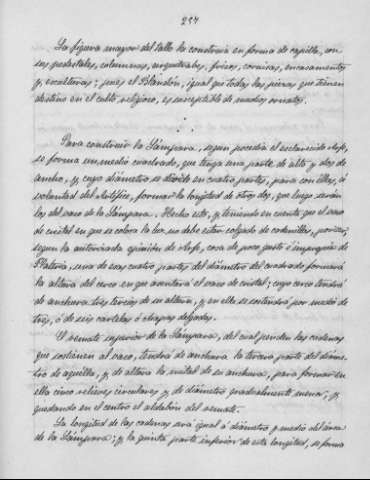 257
La figura mayor del tallo la construía en forma de capilla, con
sus pedestales, columnas, arquitrabes, frisos, cornisas, encasamentos
y escaleras; pues el Blandón, igual que todas las piezas que tienen
destino en el culto religioso, es susceptible de muchos ornatos.
Para construir la Lámpara, según procedía el esclarecido Arfe,
se forma un medio cuadrado, que tenga una parte de alto y dos de
ancho, y cuyo diámetro se divide en cuatro partes, para con ellas, á
voluntad del Artífice, formar la longitud de otras dos, que luego serán
las del vaso de la Lámpara. Hecho esto, y teniendo en cuenta que el vaso
de cristal en que se coloca la luz, no debe estar colgado de cadenillas, por ser,
según la autorizada opinión de Arfe, cosa de poco gusto é impropia de
Platería, una de esas cuatro partes del diámetro del cuadrado formará
la altura del cerco en que asentará el vaso de cristal; cuyo cerco tendrá
de anchura dos tercios de su altura, y en ella se sostendrá por medio de
tres, ó de seis cartelas ó chapas delgadas.
El remate superior de la Lámpara, del cual penden las cadenas
que sostienen al vaso, tendrá de anchura la tercera parte del diáme-
tro de aquella, y de altura la mitad de su anchura, para formar en
ella cinco relieves circulares y de diámetro gradualmente menor, y
quedando en el centro el aldabón del remate.
La longitud de las cadenas será igual á diámetro y medio del área
de la Lámpara; y la quinta parte inferior de esta longitud, se forma